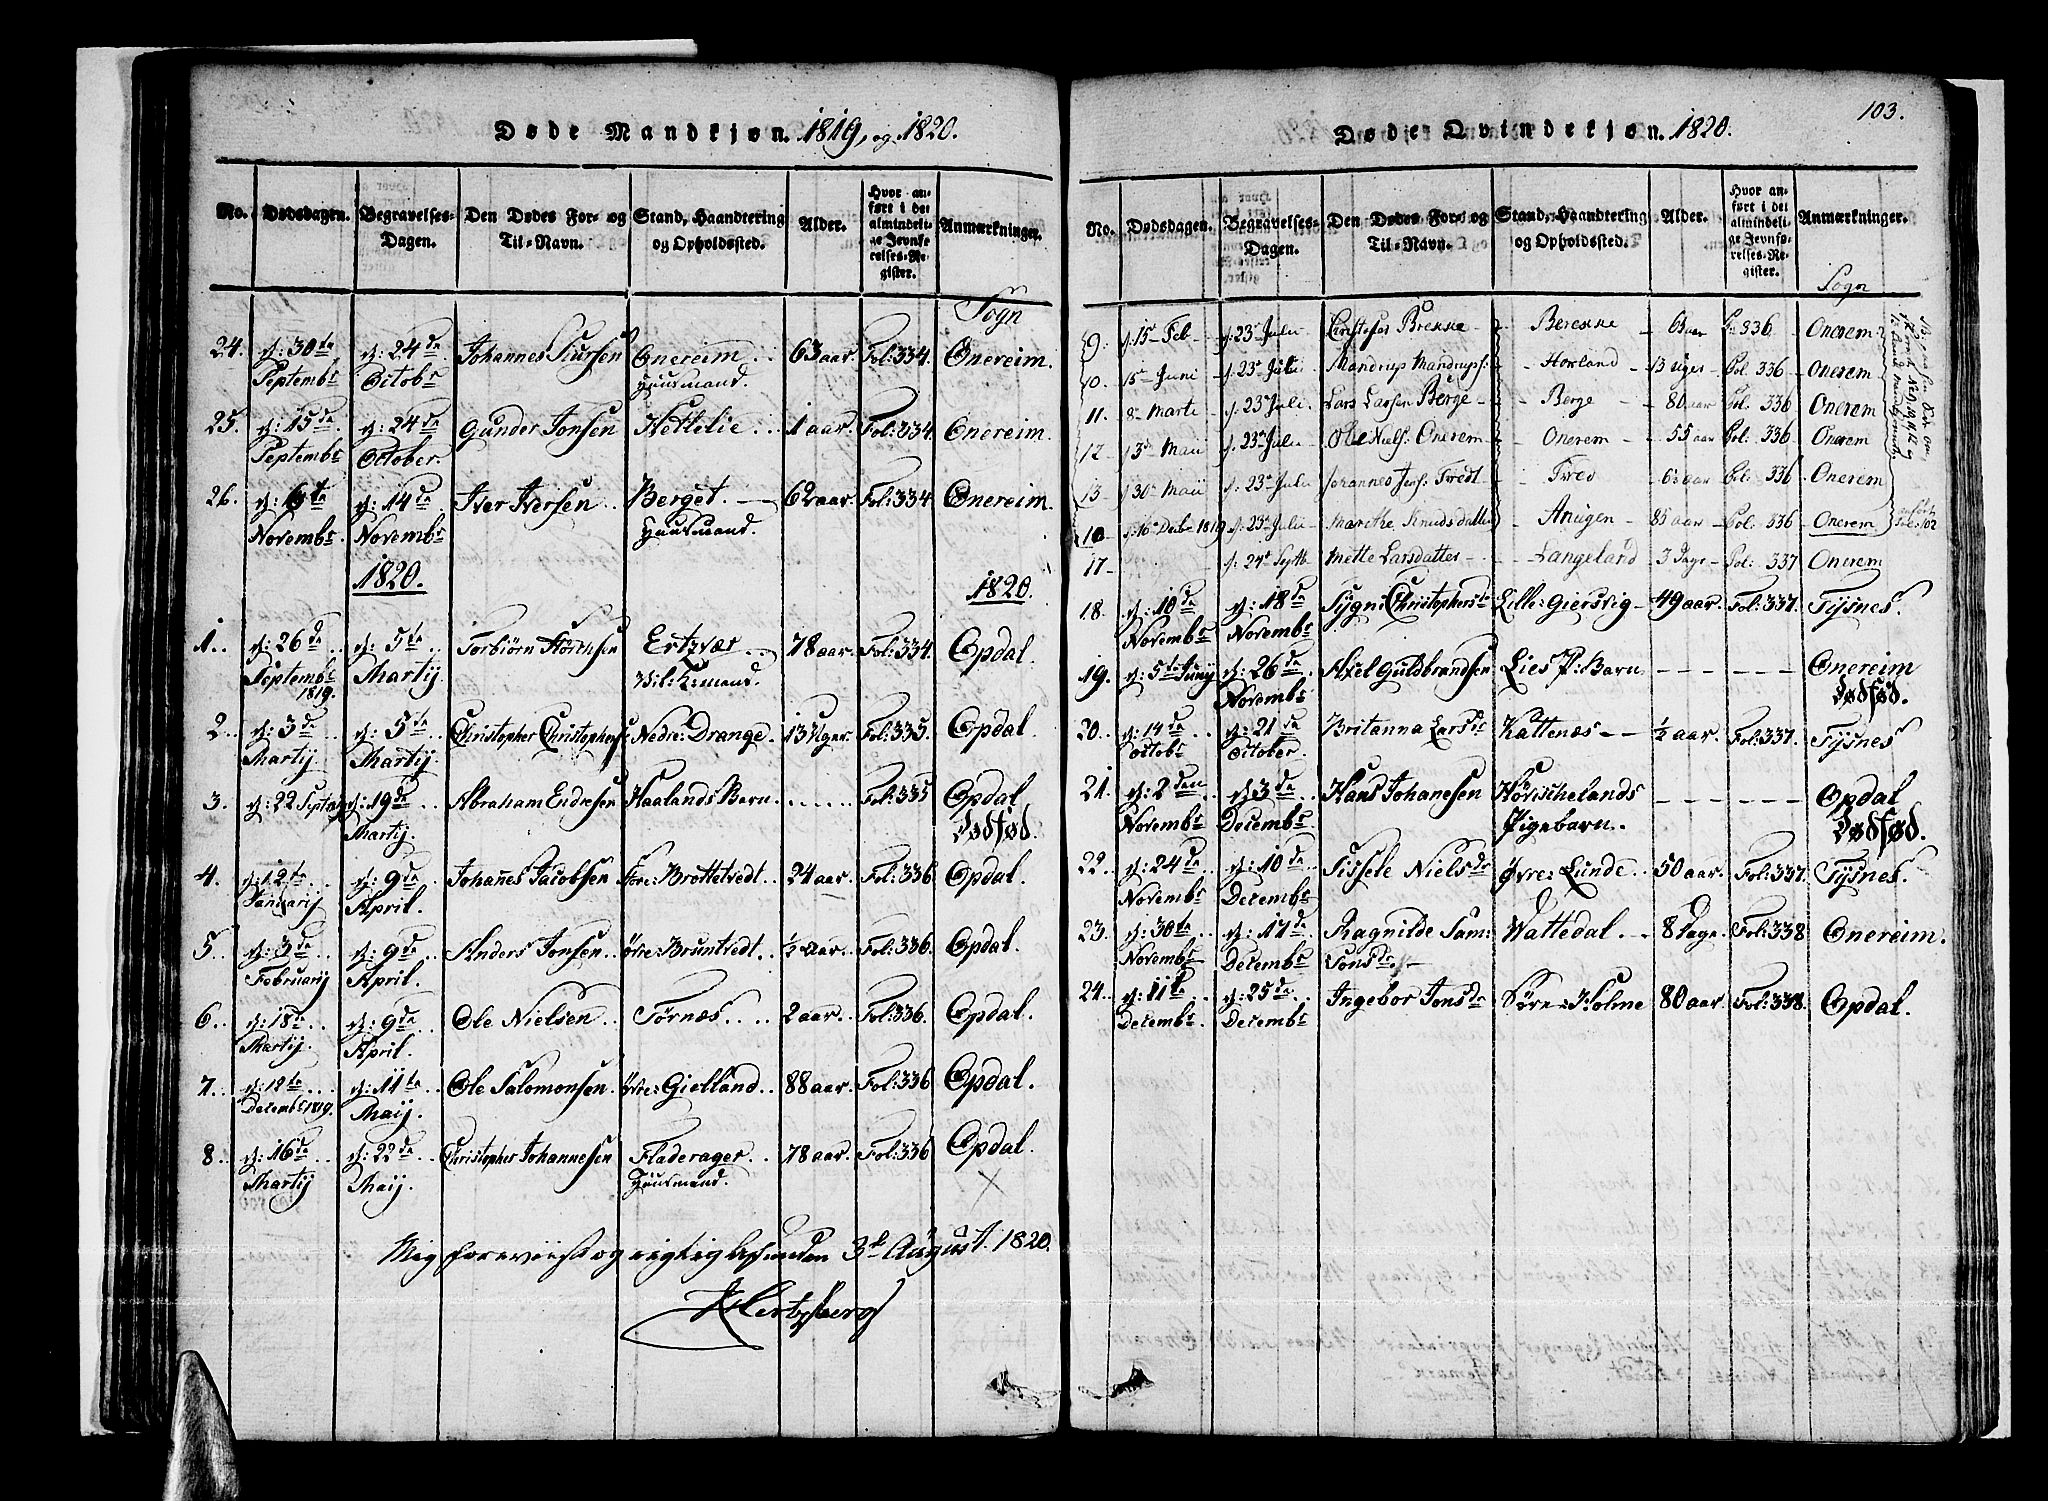 Døde Mandkjøn. 1819, og 1820.
No. Dødsdagen. Begravelses-Dagen. Den Dødes For- og Til-Navn. Stand, Haandtering og Opholdssted. Alder. Hvor anført i det almindelige Jevnførelses-Register. Anmærkninger.
Sogn
24. d: 30te d: 24de Johannes Siursen Onereim 63 aar. Fol: 334. Onereim.
Septembr Octobr Huusmand.
25. d: 15de d: 24de Gunder Jonsen Hettelie 1 aar. Fol: 334. Onereim.
Septembr October.
26. d: 6te d: 14de Iver Iversen Berget 62 aar. Fol: 334 Onereim.
Novembr Novembr Huusmand.
1820. 1820.
1. d: 26de d: 5te Torbiørn 78 aar. Fol: 334. Opdal.
Septembr Martij
1819.
2. d: 3de d: 5te Christopher Christophers: Nedre: Drange 13 Uger. Fol: 335. Opdal.
Martij Martij.
3. d: 22 Septbr d: 19de Abraham Endresen Haalands Barn Fol: 335 Opdal
Martij. Dødfød.
4. d: 12te d: 9de Johannes Jacobsen 24 aar. Fol: 336 Opdal.
Januarij April.
5. d: 3de d: 9de Anders Jonsen Øvre: Bruntvedt. ½ aar. Fol: 336. Opdal.
Februarij April.
6. d: 18de d: 9de Ole Nielsen Tørnæs 2 aar. Fol: 336. Opdal.
Martij. April.
7. d: 12te d: 11te Ole Salomonsen Øvre: Gielland 88 aar. Fol: 336 Opdal.
Decembr 1819. Maij.
8. d: 16de d: 22de Christopher Johannesen Fladerager 78 aar. Fol: 336 Opdal.
Martij Maij. Huusmand. X
Mig foreviist og rigtig befunden 3d August. 1820.
Hertzberg
103.
Døde Qvindekjøn. 1820.
No. Dødsdagen. Begravelses-Dagen. Den Dødes For- og Til-Navn. Stand, Haandtering og Opholdssted. Alder. Hvor anført i det almindelige Jevnførelses-Register. Anmærkninger.
Sogn
9. d: 15 Feb d: 23de Julii Christofer Brekke Berekke Fol: 336 Onerem
10. 15 Juni d: 23de Julii Mandrup Mandrups: Hovland 13 uger Fol: 336 Onerem
11. 8 Marti d: 23de Julii Lars Larsen Berge Berge 80 aar Fol: 336 Onerem
12 13 Maii d: 23de Julii Ole Nels: Onerem Onerem 55 aar Fol: 336 Onerem
13 30de Maii d: 23de Julii Johannes Tvedt Tved Fol: 336 Onerem
10 d: 16 Decbr 1819 d: 23de Julii Marithe Knudsdatter Anugen 85 aar Fol: 336 Onerem
17 d: 24de Septb Mette Larsdatter Langeland 3 Dage Fol: 337 Onerem
18. d: 10de d: 18de Sygni: Christophersdr Lille: Giersvig 49 aar. Fol: 337. Tysnes.
Novembr Novembr
19. d: 5te Junij d: 26de Axel Guldbrandsen Lies P: Barn Onereim
Novembr Dødfød.
20. d: 14de d: 21de Britanna Larsdr Kattenæs ½ aar. Fol: 337. Tysnes
Octobr October.
21. d: 2den d: 3de Hans Johanesen Høvischelands Opdal
Novembr Decembr Pigebarn. Dødfød.
22. d: 24de d: 10de Sissele Nielsdr Øvre: Lunde 50 aar. Fol: 337. Tysnes.
Novembr Decembr
23. d: 30te d: 17de Ragnilde Sam: Wattedal 8 Dage. Fol: 338 Onereim.
Novembr Decembr sonsdr
24. d: 11te d: 25de Ingebor Jonsdr Søre: Holme 80 aar. Fol: 338. Opdal.
Decembr Decembr